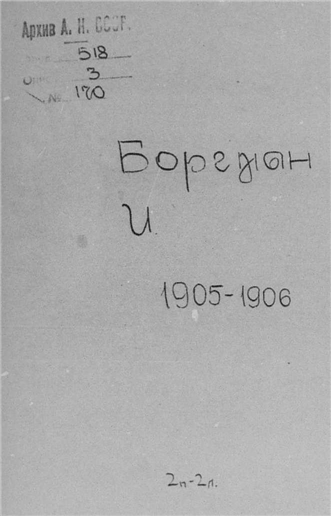 Архив А. Н. СССР.
518
3
№ 170
Боргман
И.
1905-1906
2п-2л.